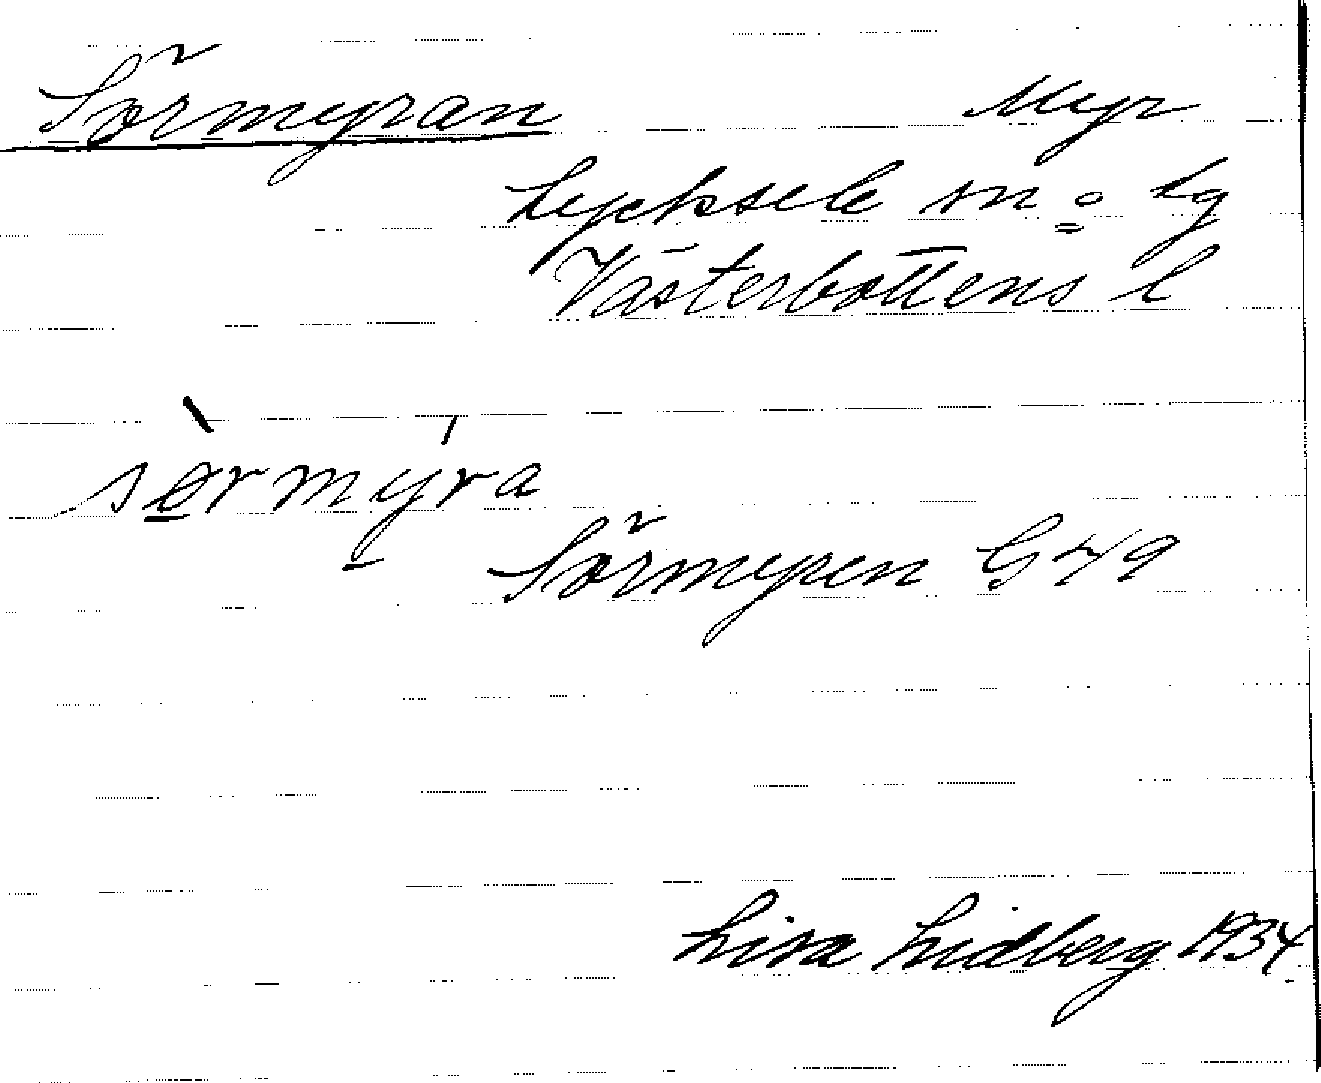 Sörmyran Myr
Lycksele sn o lg
Västerbottens l
sèrmýra
Sörmyren G 49
Lisa Lidberg 1934